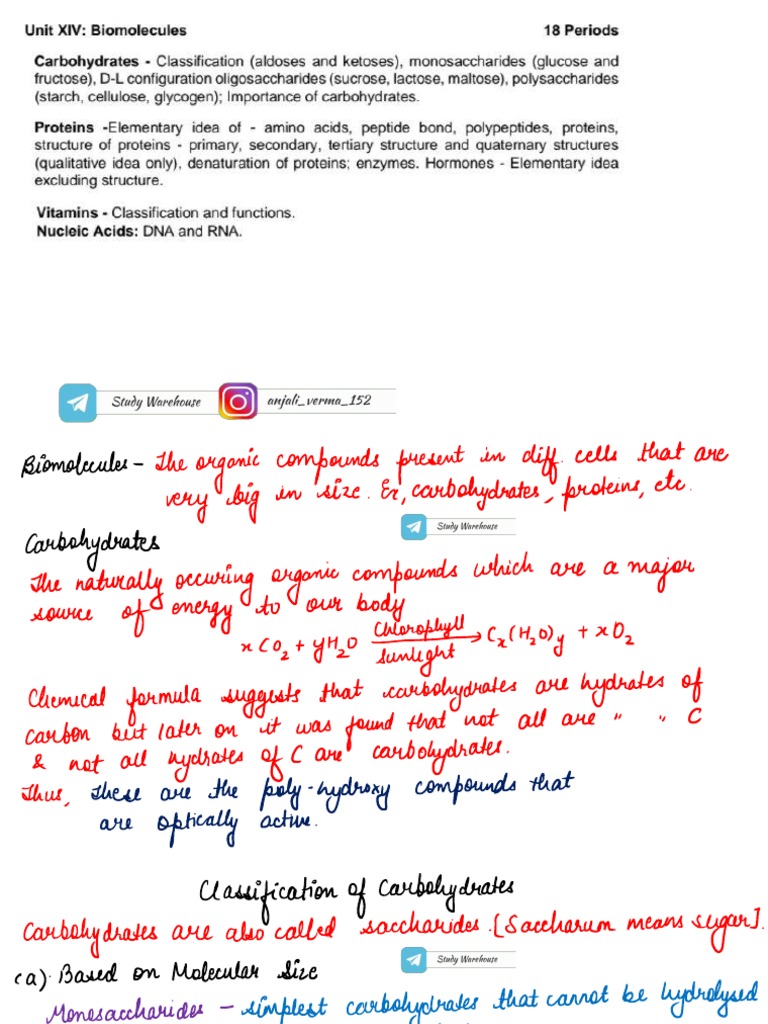 Unit XIV: Biomolecules 18 Periods
Carbohydrates - Classification (aldoses and ketoses), monosaccharides (glucose and
fructose), D-L configuration oligosaccharides (sucrose, lactose, maltose), polysaccharides
(starch, cellulose, glycogen); Importance of carbohydrates.
Proteins -Elementary idea of - amino acids, peptide bond, polypeptides, proteins,
structure of proteins - primary, secondary, tertiary structure and quaternary structures
(qualitative idea only), denaturation of proteins; enzymes. Hormones - Elementary idea
excluding structure.
Vitamins - Classification and functions.
Nucleic Acids: DNA and RNA.
Study Warehouse anjali_verma_152
Biomolecules - The organic compounds present in diff. cells that are
very big in size. Ex, carbohydrates, proteins, etc.
Study Warehouse
Carbohydrates
The naturally occuring organic compounds which are a major
source of energy to our body
Chlorophyll
xCO₂ + yH₂O → Cₓ(H₂O)y + xO₂
Sunlight
Chemical formula suggests that carbohydrates are hydrates of
carbon but later on it was found that not all are " " C
& not all hydrates of C are carbohydrates.
Thus, these are the poly-hydroxy compounds that
are optically active.
Classification of Carbohydrates
Carbohydrates are also called saccharides. [Saccharum means sugar].
Study Warehouse
(a). Based on Molecular Size
Monosaccharides - simplest carbohydrates that cannot be hydrolysed